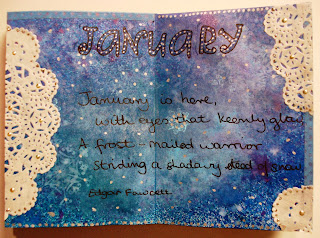 JANUARY
January is here,
with eyes that keenly glow
A frost-mailed warrior
striding a shadowy steed of snow
Edgar Fawcett